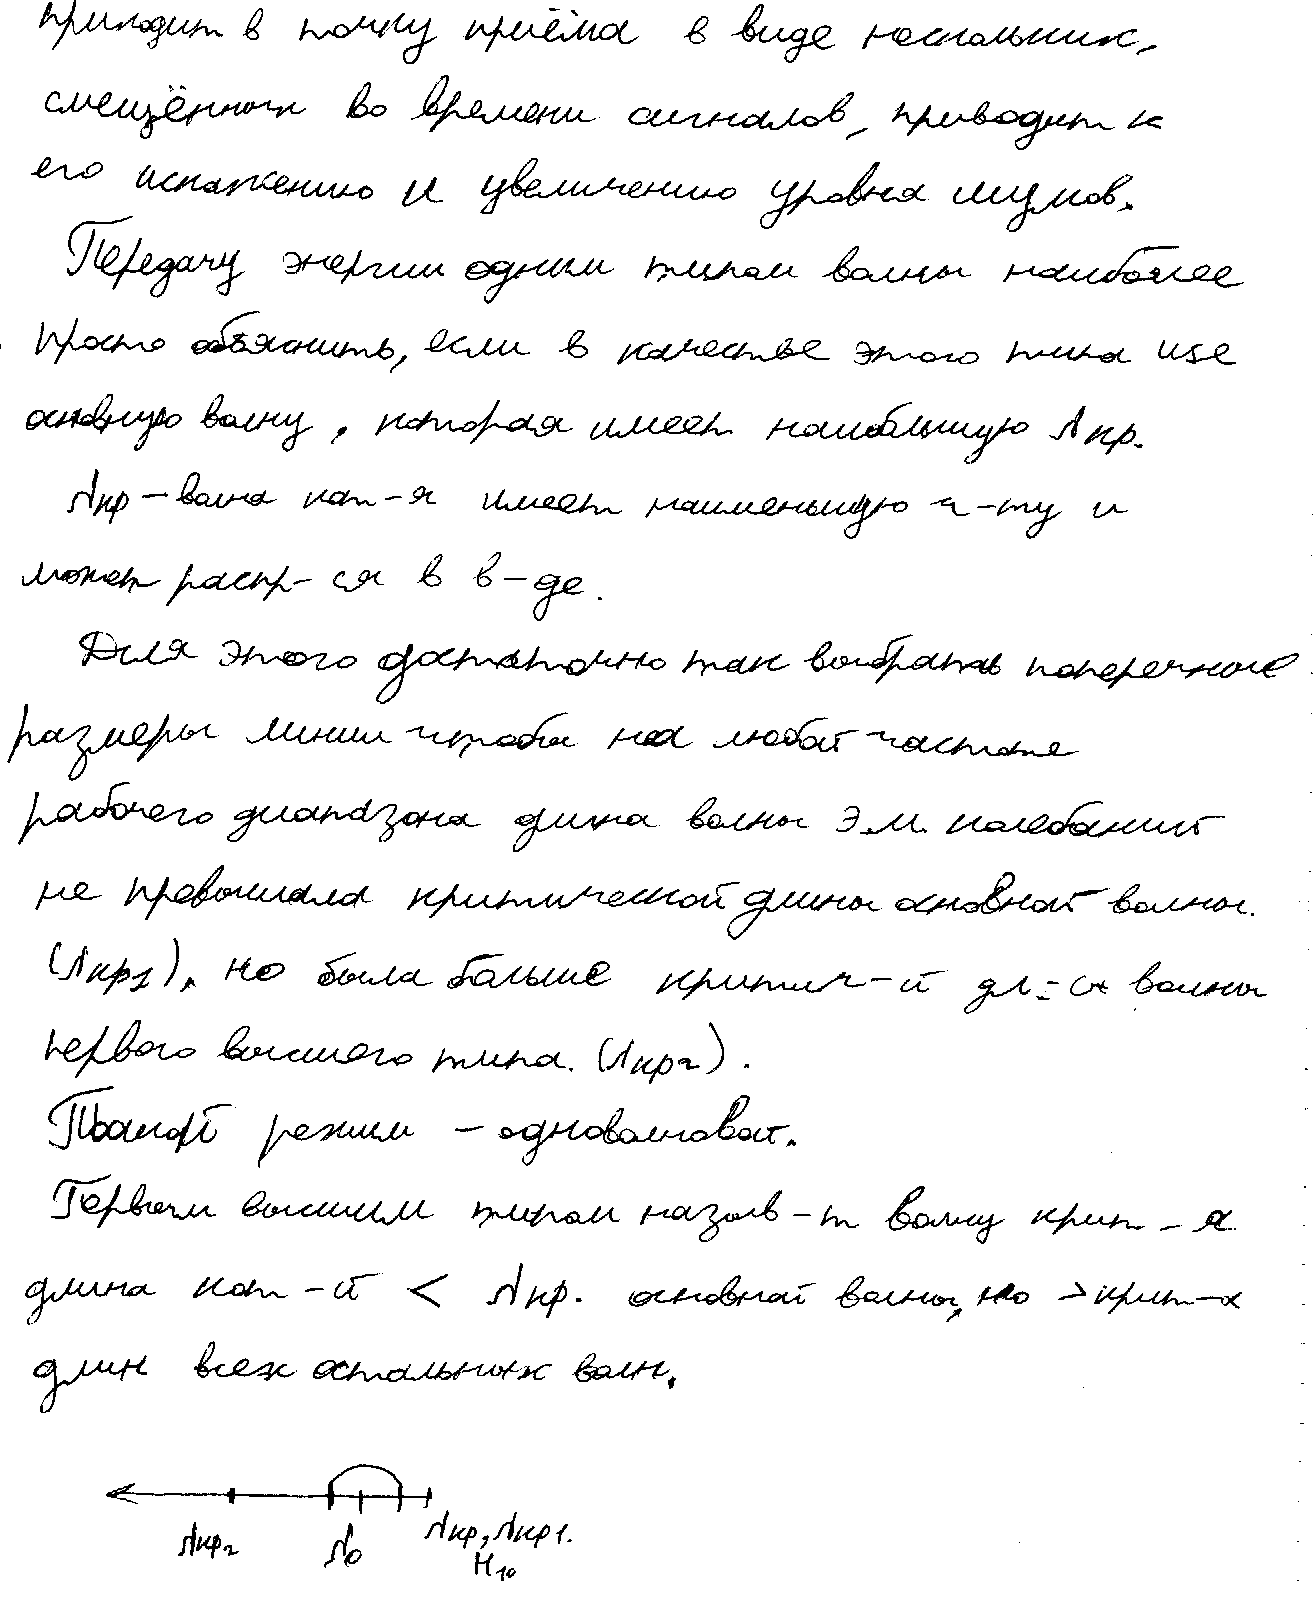 приходит в точку приёма в виде нескольких,
смещённых во времени сигналов, приводит к
его искажению и увеличению уровня шумов.
Передачу энергии одним типом волны наиболее
просто объяснить, если в качестве этого типа use
основную волну, которая имеет наибольшую λкр.
λкр – волна кот-я имеет наименьшую ч-ту и
может распр-ся в в-де.
Для этого достаточно так выбрать поперечные
размеры линии чтобы на любой частоте
рабочего диапазона длина волны э.м. колебаний
не превышала критической длины основной волны.
(λкр1), но была больше критич-й дл-ы волны
первого высшего типа. (λкр2).
Такой режим – одноволновой.
Первым высшим типом назыв-т волну крит-я
длина кот-й < λкр. основной волны, но > крит-х
длин всех остальных волн.
λкр2 λ0 λкр, λкр1.
H10